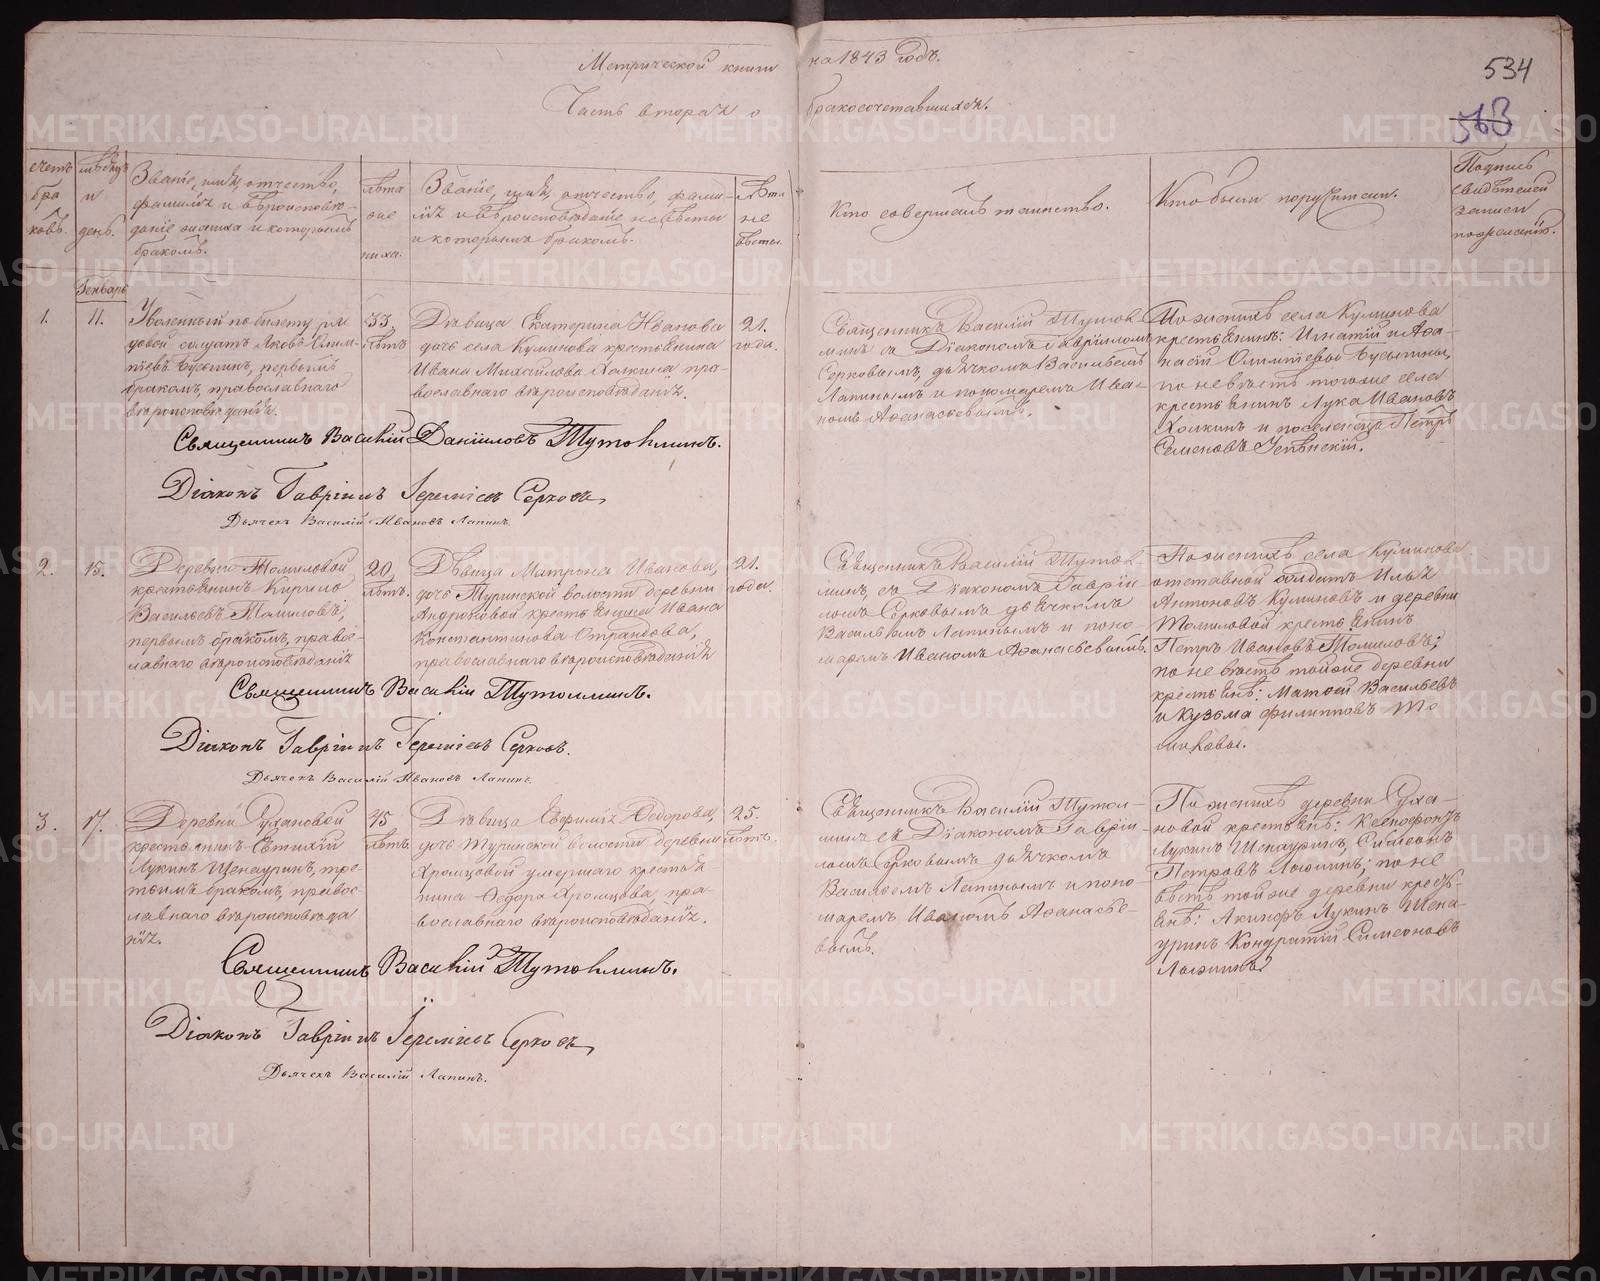 Метрической книги на 1843 годъ.
Часть вторая о бракосочетавшихся.
534
563
счетъ браковъ.
мѣсяцъ и день.
Званіе, имя, отчество,
фамилія и вѣроисповѣ-
даніе жениха и которымъ
бракомъ.
лѣта
жениха.
Званіе, имя, отчество, фами-
лія и вѣроисповѣданіе невѣсты
и которымъ бракомъ.
Лѣта
не
вѣсты.
Кто совершалъ таинство.
Кто были поручители.
Подпись
свидѣтелей
записи
по желанію.
Генварь
1.
11.
Уволенный по билету ря
довой солдатъ Яковъ
Бусыгинъ, первымъ
бракомъ, православнаго
вѣроисповѣданія.
33.
лѣтъ
Дѣвица Екатерина Иванова
дочь села Куминова крестьянина
Ивана Михайлова Холкина пра-
вославнаго вѣроисповѣданія.
21.
года.
Священникъ Василій Тутол
минъ съ Діакономъ Гавріиломъ
Серковымъ, дьячкомъ Васильемъ
Лапинымъ и пономаремъ Ива-
номъ Аѳанасьевымъ.
По женихѣ села Куминова
крестьянинъ: Игнатій и Аѳа-
насій Бусыгины,
по невѣстѣ тогоже села
крестьянинъ Лука Ивановъ
Холкинъ и поселенецъ Петръ
Семеновъ
Священникъ Василій Даніиловъ Тутолминъ.
Діаконъ Гавріилъ Іереміевъ Серковъ,
Дьячекъ Василій Ивановъ Лапинъ.
2.
15.
Деревни Томиловой
крестьянинъ Кирило
Васильевъ Томиловъ,
первымъ бракомъ, правос-
лавнаго вѣроисповѣданія
20.
лѣтъ.
Дѣвица Матрона Иванова,
дочь Туринской волости деревни
Андроновой крестьянина Ивана
Константинова
православнаго вѣроисповѣданія
21.
года.
Священникъ Василій Тутол-
минъ, съ Діакономъ Гаврiи-
ломъ Серковымъ дьячкомъ
Васильемъ Лапинымъ и поно
маремъ Иваномъ Аѳанасьевымъ.
По женихѣ села Куминова
отставной солдатъ Илья
Антоновъ Куминовъ и деревни
Томиловой крестьянинъ
Петръ Ивановъ Томиловъ;
по невѣстѣ тойже деревни
крестьянѣ: Матѳей Васильевъ
и Кузьма Филипповъ То
миловы.
Священникъ Василій Тутолминъ.
Діаконъ Гавріилъ Іереміевъ Серковъ.
Дьячекъ Василій Ивановъ Лапинъ.
3.
17.
Деревни Сухановой
крестьянинъ Евтихій
Лукинъ Шенауринъ, тре-
тьимъ бракомъ, правос-
лавнаго вѣроисповѣда
нія.
45
лѣтъ.
Дѣвица Евфимія Ѳедорова,
дочь Туринской волости деревни
Храмцовой умершаго крестья
нина Ѳедора Храмцова, пра-
вославнаго вѣроисповѣданія.
25.
лѣтъ.
Священникъ Василій Тутол-
минъ съ Діакономъ Гавріи
ломъ Серковымъ дьячкомъ
Васильемъ Лапинымъ и поно-
маремъ Иваномъ Аѳанасье-
вымъ.
По женихѣ деревни Суха-
новой крестьянѣ: Ксенофонтъ
Лукинъ Шенауринъ, Симеонъ
Петровъ по не
вѣстѣ тойже деревни кресть-
янѣ: Акинфъ Лукинъ Шена-
уринъ Кондратій Симеоновъ
Священникъ Василій Тутолминъ.
Діаконъ Гавріилъ Іереміевъ Серковъ,
Дьячекъ Василій Лапинъ.
METRIKI.GASO-URAL.RU